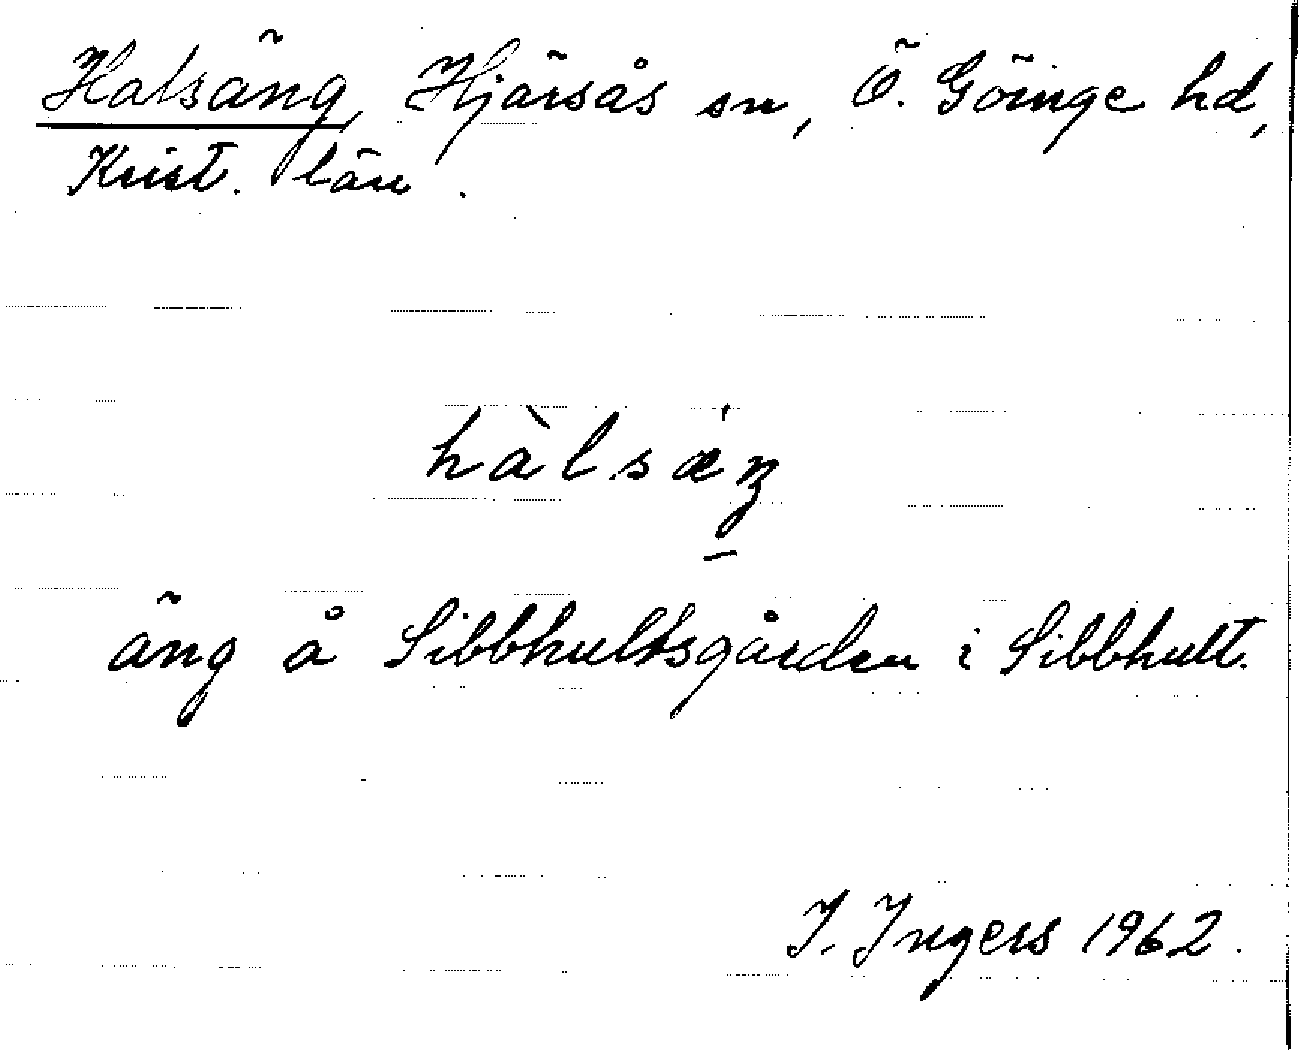 Halsäng, Hjärsås sn, Ö. Göinge hd,
Krist. län.
hàlsæŋ
äng å Sibbhultsgården i Sibbhult.
I. Ingers 1962.